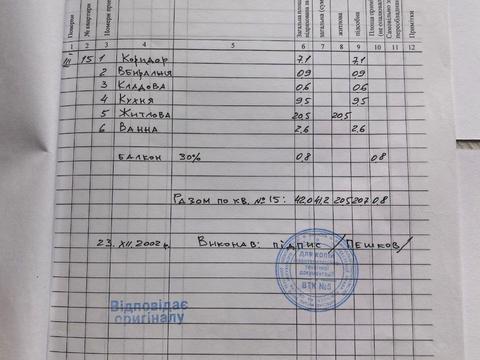 Поверхи
№ квартири
Номери прим
Загальна площа
загальна (сума
житлова
підсобна
Площа примі
(не опалювані
Самовільно з
переобладнан
Примітки
1 2 3 4 5 6 7 8 9 10 11 12
III 15 1 Коридор 7.1 7.1
2 Вбиральня 0.9 0.9
3 Кладова 0.6 0.6
4 Кухня 9.5 9.5
5 Житлова 20.5 20.5
6 Ванна 2.6 2.6
Балкон 30% 0.8 0.8
Разом по кв. №15: 42.0 41.2 20.5 20.7 0.8
23. XII. 2002 р. Виконав: підпис /Пешков/
Для копій
технічної
документації
ВТК №5
Відповідає
оригіналу